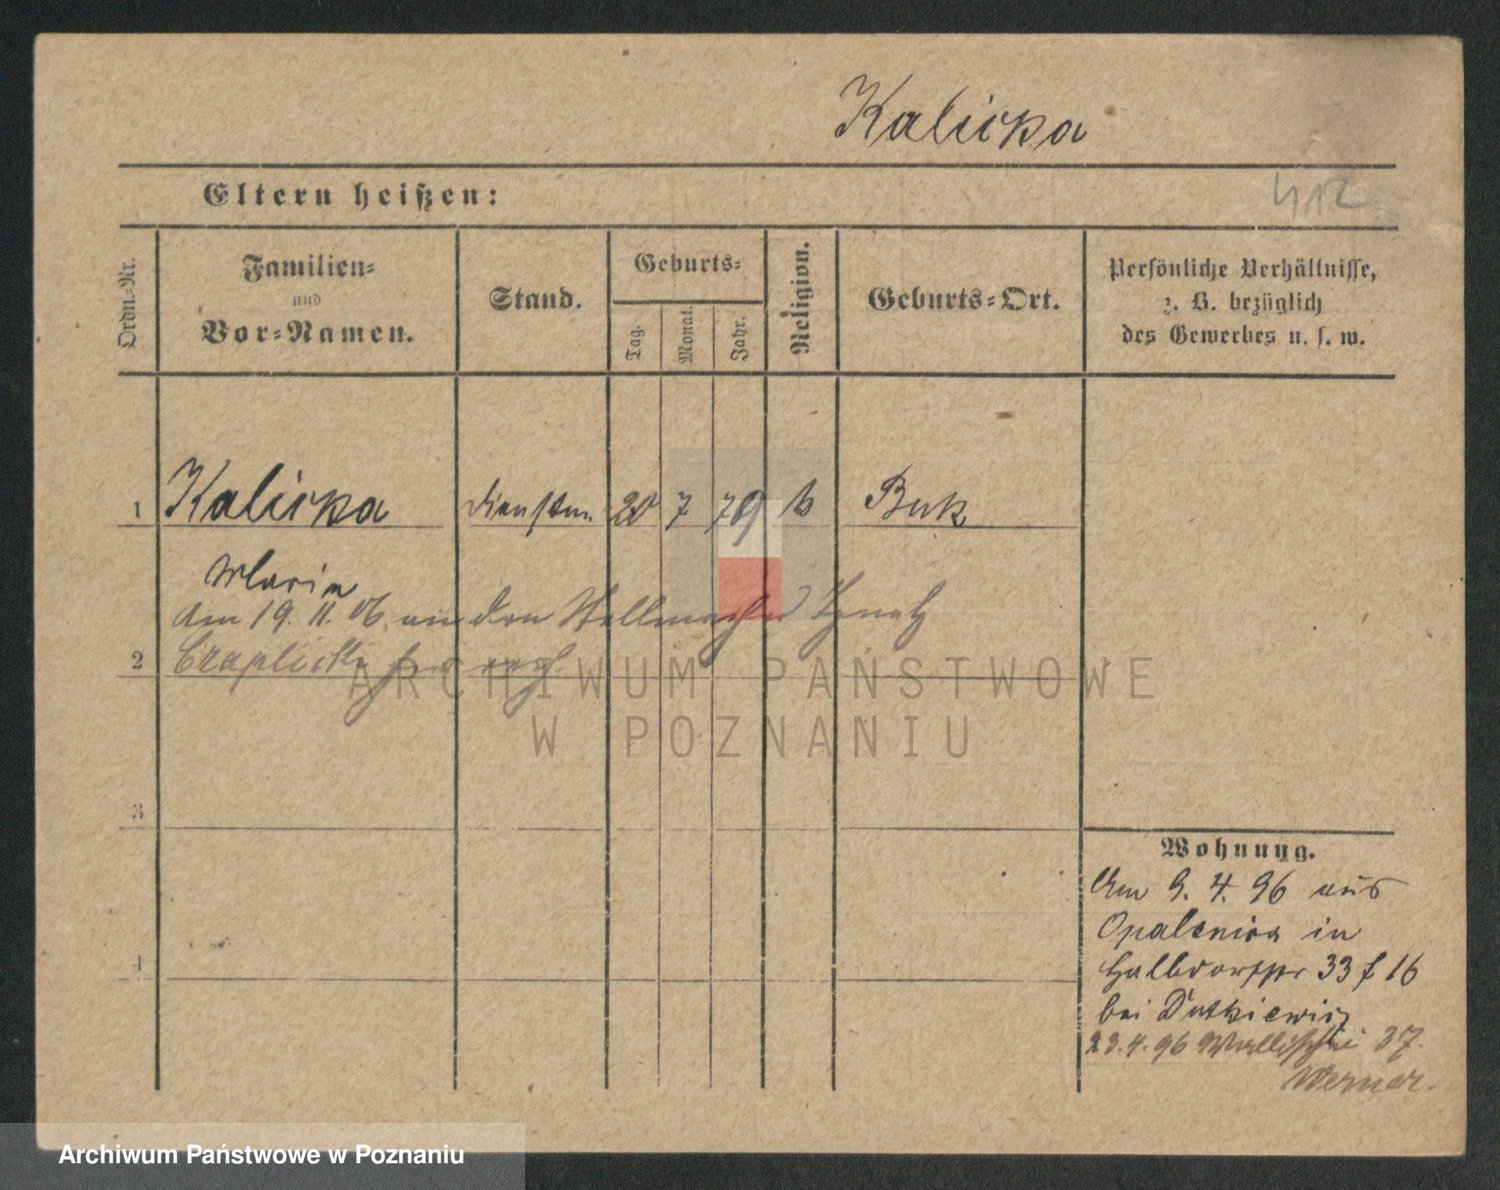 Kalicka
412
Eltern heißen:
Ordn.-Nr.
Familien-
und
Vor-Namen.
Stand.
Geburts-
Tag.
Monat.
Jahr.
Religion.
Geburts-Ort.
Persönliche Verhältnisse,
z. B. bezüglich
des Gewerbes u. s. w.
1 Kalicka Dienstm. 20 7 79 k Buk
Maria
Am 19. 11. 06 an den Stellmacher Ignatz
2 Czaplicki
ARCHIWUM PAŃSTWOWE
W POZNANIU
3
Wohnung.
Am 9. 4. 96 aus
Opalenica in
4
Halbdorfstr 33 f 16
bei Dutkiewicz
23.4.96 Wallischei 37.
Werner.
Archiwum Państwowe w Poznaniu